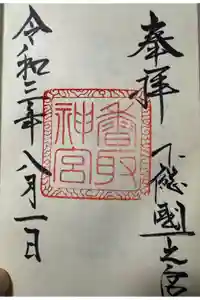 奉拝
下總國一之宮
香取神宮
令和三年八月一日